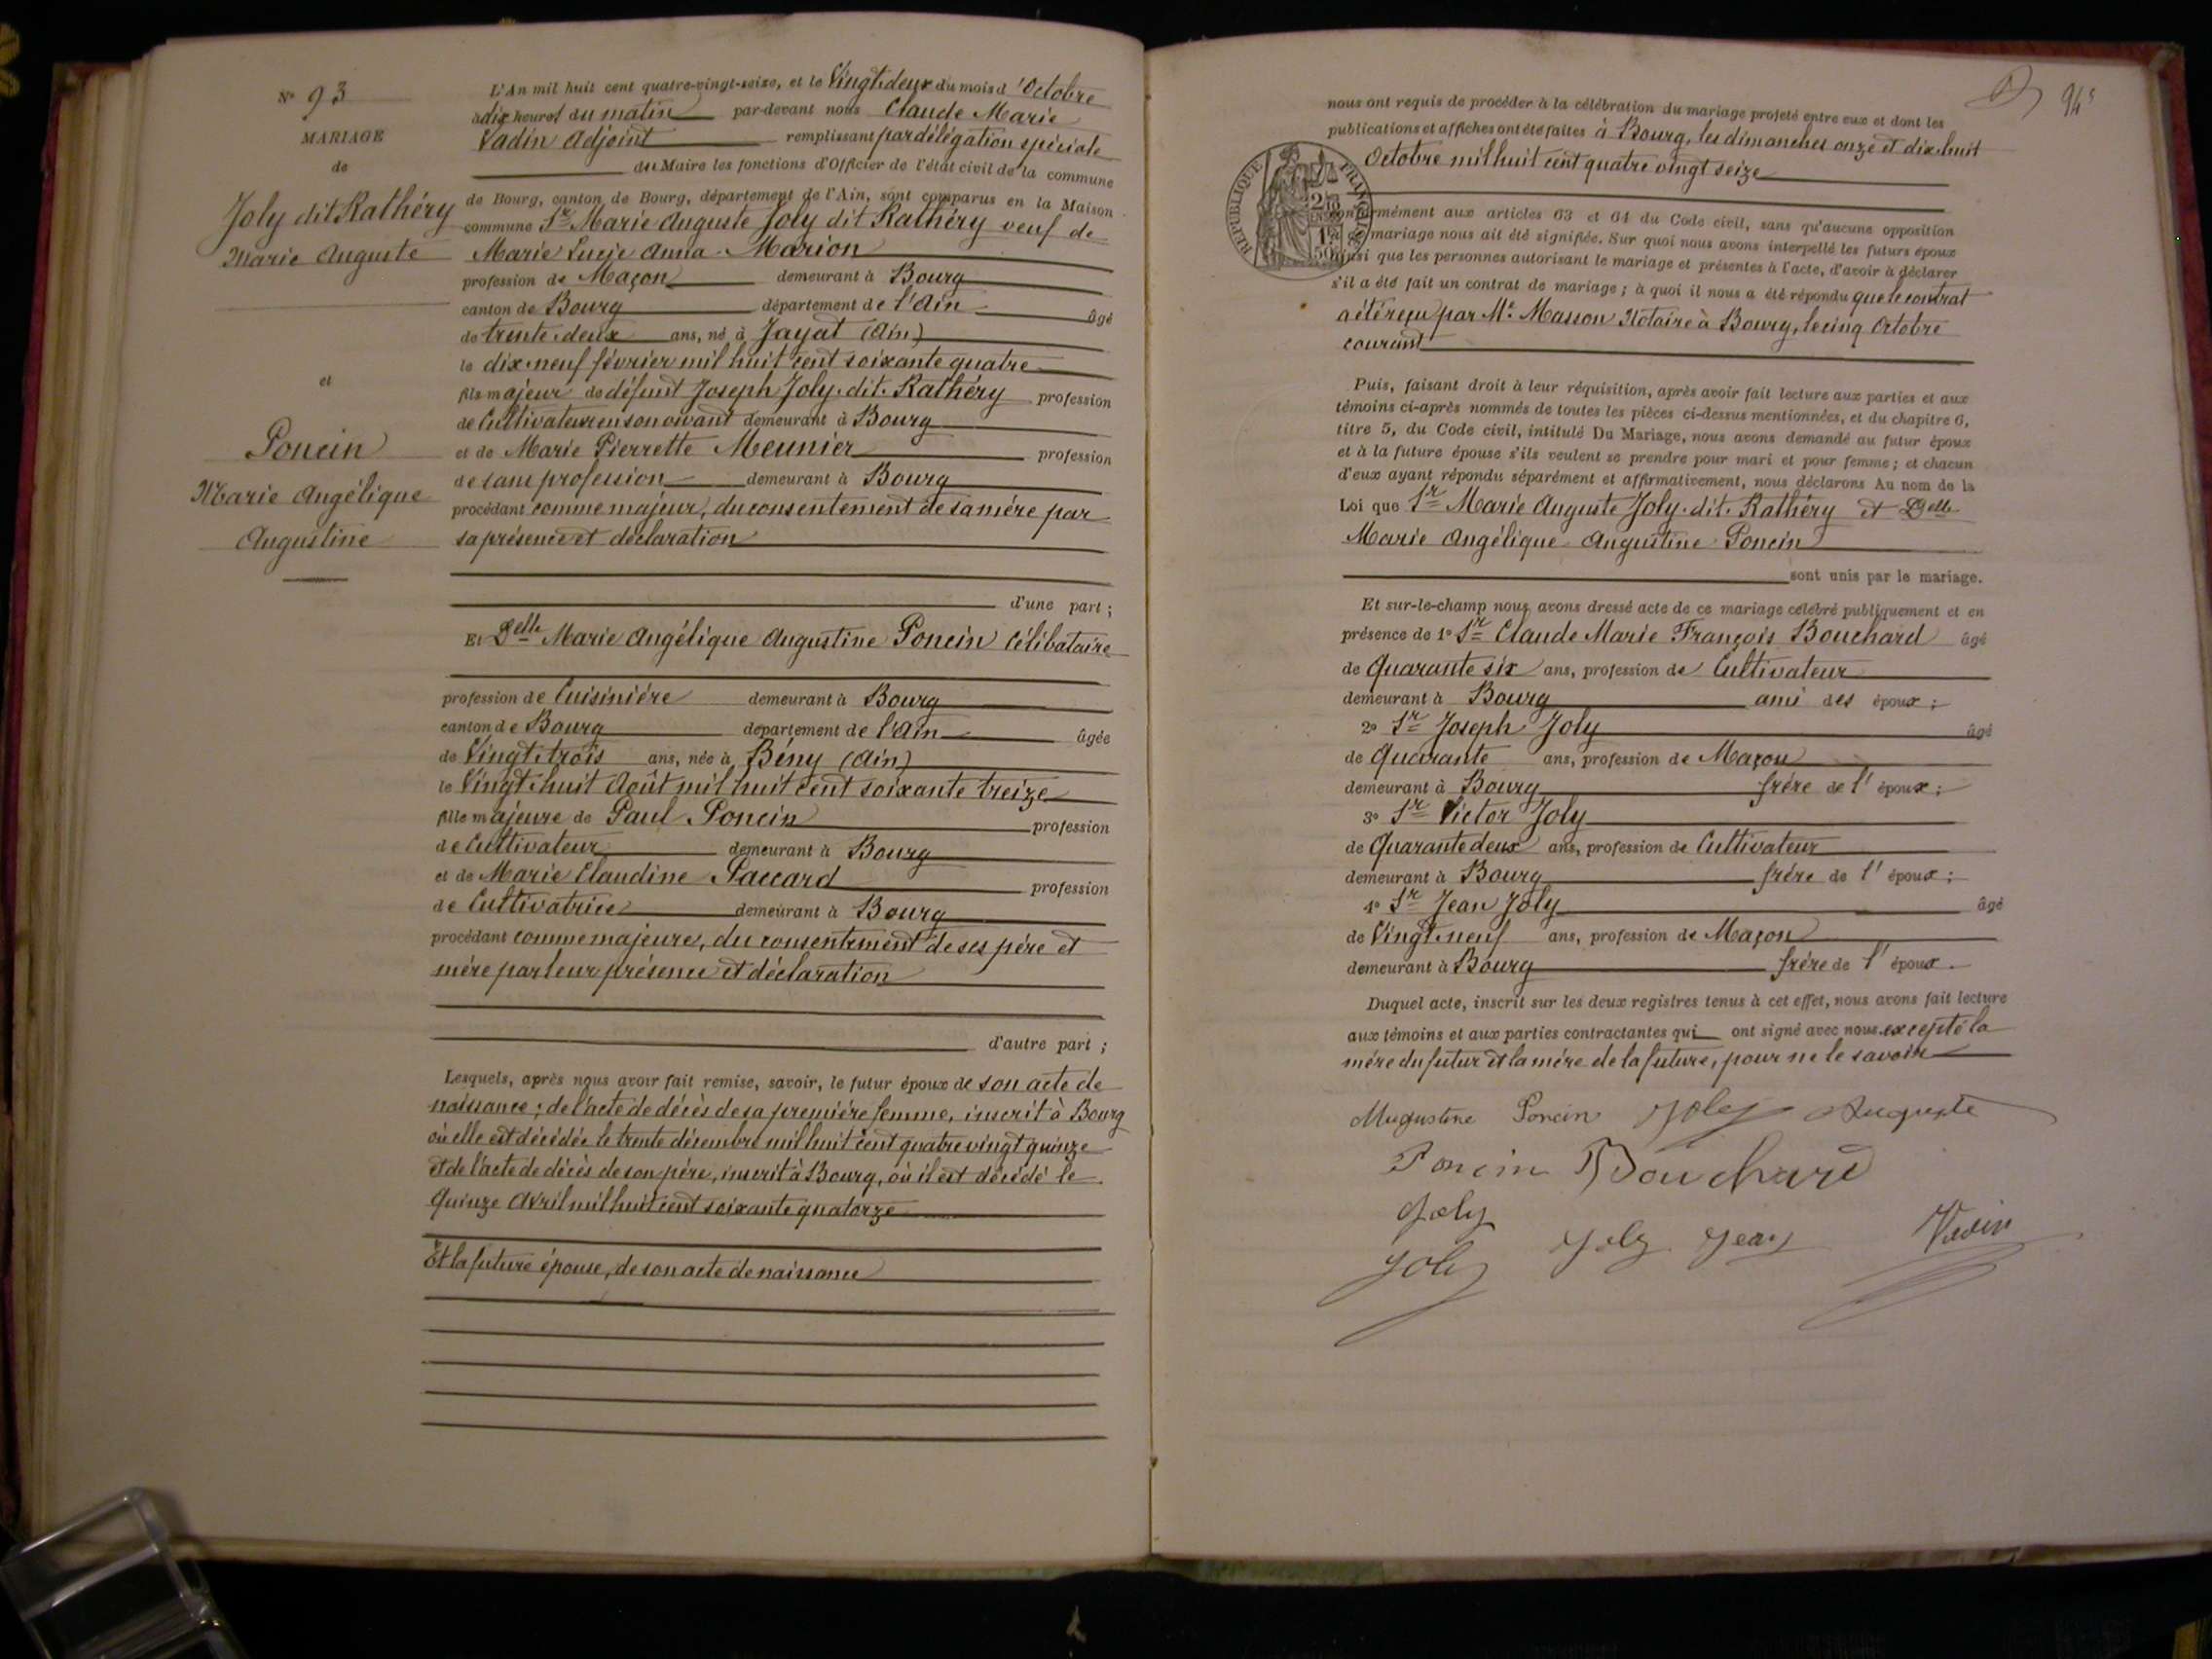 N° 93
MARIAGE
de
Joly dit Rathéry
Marie Auguste
et
Poncin
Marie Angélique
Augustine
L'An mil huit cent quatre-vingt-seize, et le Vingt-deux du mois d'Octobre
à dix heures du matin par-devant nous Claude Marie
Vadin Adjoint remplissant par délégation spéciale
du Maire les fonctions d'Officier de l'état civil de la commune
de Bourg, canton de Bourg, département de l'Ain, sont comparus en la Maison
commune Sr Marie Auguste Joly dit Rathéry veuf de
Marie Lucie Anna Marion
profession de Maçon demeurant à Bourg
canton de Bourg département de l'Ain âgé
de trente deux ans, né à Jayat (Ain)
le dix-neuf février mil huit cent soixante quatre
fils majeur de défunt Joseph Joly dit Rathéry profession
de Cultivateur en son vivant demeurant à Bourg
et de Marie Pierrette Meunier profession
de sans profession demeurant à Bourg
procédant comme majeur, du consentement de sa mère par
sa présence et déclaration
d'une part ;
Et Delle Marie Angélique Augustine Poncin Célibataire
profession de Cuisinière demeurant à Bourg
canton de Bourg département de l'Ain âgée
de Vingt-trois ans, née à Bény (Ain)
le Vingt-huit Août mil huit cent soixante treize
fille majeure de Paul Poncin profession
de Cultivateur demeurant à Bourg
et de Marie Claudine Paccard profession
de Cultivatrice demeurant à Bourg
procédant comme majeure, du consentement de ses père et
mère par leur présence et déclaration
d'autre part ;
Lesquels, après nous avoir fait remise, savoir, le futur époux de son acte de
naissance ; de l'acte de décès de sa première femme, inscrit à Bourg
où elle est décédée le trente décembre mil huit cent quatre vingt quinze
et de l'acte de décès de son père, inscrit à Bourg, où il est décédé le
Quinze Avril mil huit cent soixante quatorze
Et la future épouse, de son acte de naissance
94
nous ont requis de procéder à la célébration du mariage projeté entre eux et dont les
publications et affiches ont été faites à Bourg, les dimanches onze et dix-huit
Octobre mil huit cent quatre vingt seize
RÉPUBLIQUE FRANÇAISE
conformément aux articles 63 et 64 du Code civil, sans qu'aucune opposition
mariage nous ait été signifiée. Sur quoi nous avons interpellé les futurs époux
ainsi que les personnes autorisant le mariage et présentes à l'acte, d'avoir à déclarer
s'il a été fait un contrat de mariage ; à quoi il nous a été répondu que le contrat
a été reçu par Me Masson Notaire à Bourg, le cinq Octobre
courant
Puis, faisant droit à leur réquisition, après avoir fait lecture aux parties et aux
témoins ci-après nommés de toutes les pièces ci-dessus mentionnées, et du chapitre 6,
titre 5, du Code civil, intitulé Du Mariage, nous avons demandé au futur époux
et à la future épouse s'ils veulent se prendre pour mari et pour femme ; et chacun
d'eux ayant répondu séparément et affirmativement, nous déclarons Au nom de la
Loi que Sr Marie Auguste Joly dit Rathéry et Delle
Marie Angélique Augustine Poncin
sont unis par le mariage.
Et sur-le-champ nous avons dressé acte de ce mariage célébré publiquement et en
présence de 1° Sr Claude Marie François Bouchard âgé
de Quarante six ans, profession de Cultivateur
demeurant à Bourg ami des époux ;
2° Sr Joseph Joly âgé
de Quarante ans, profession de Maçon
demeurant à Bourg frère de l'époux ;
3° Sr Victor Joly
de Quarante deux ans, profession de Cultivateur
demeurant à Bourg frère de l'époux ;
4° Sr Jean Joly âgé
de Vingt-neuf ans, profession de Maçon
demeurant à Bourg frère de l'époux.
Duquel acte, inscrit sur les deux registres tenus à cet effet, nous avons fait lecture
aux témoins et aux parties contractantes qui ont signé avec nous excepté la
mère du futur et la mère de la future, pour ne le savoir
Augustine Poncin Joly Auguste
Poncin Bouchard
Joly
Joly Joly Jean Vadin